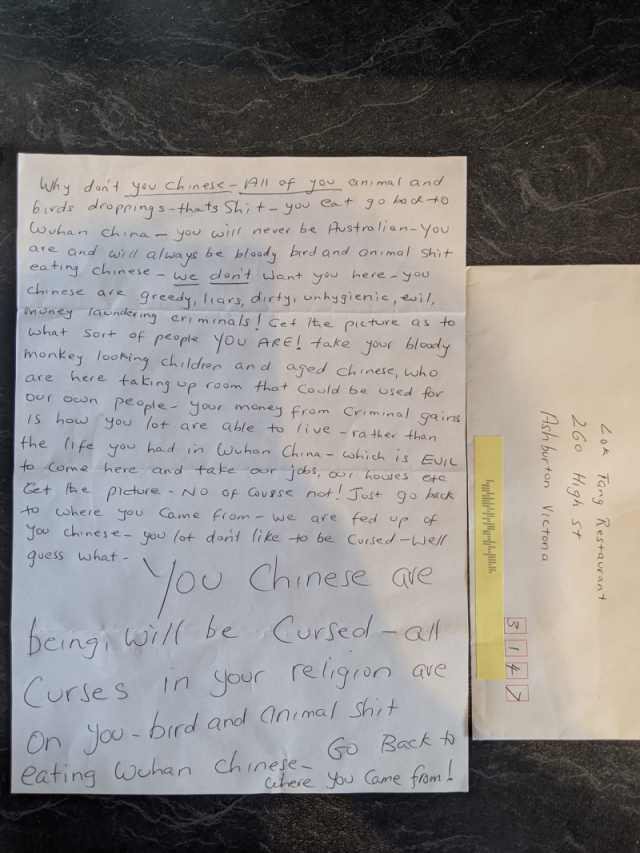 Why don't you chinese - All of you animal and
birds droppings - thats shit - you eat go back to
Wuhan China - you will never be Australian - you
are and will always be bloody bird and animal shit
eating chinese - we don't want you here - you
chinese are greedy, liars, dirty, unhygienic, evil,
money laundering criminals! Get the picture as to
what sort of people YOU ARE! take your bloody
monkey looking children and aged chinese, who
are here taking up room that could be used for
our own people - your money from criminal gains
is how you lot are able to live - rather than
the life you had in Wuhan China - which is EVIL
to come here and take our jobs, our homes etc
Get the picture - NO of course not! Just go back
to where you came from - we are fed up of
you chinese - you lot don't like to be cursed - well
guess what -
You Chinese are
being, will be Cursed - all
Curses in your religion are
on you - bird and animal shit
eating Wuhan Chinese -
Go Back to
where you came from!
Lok Tang Restaurant
260 High St
Ashburton Victoria
3147